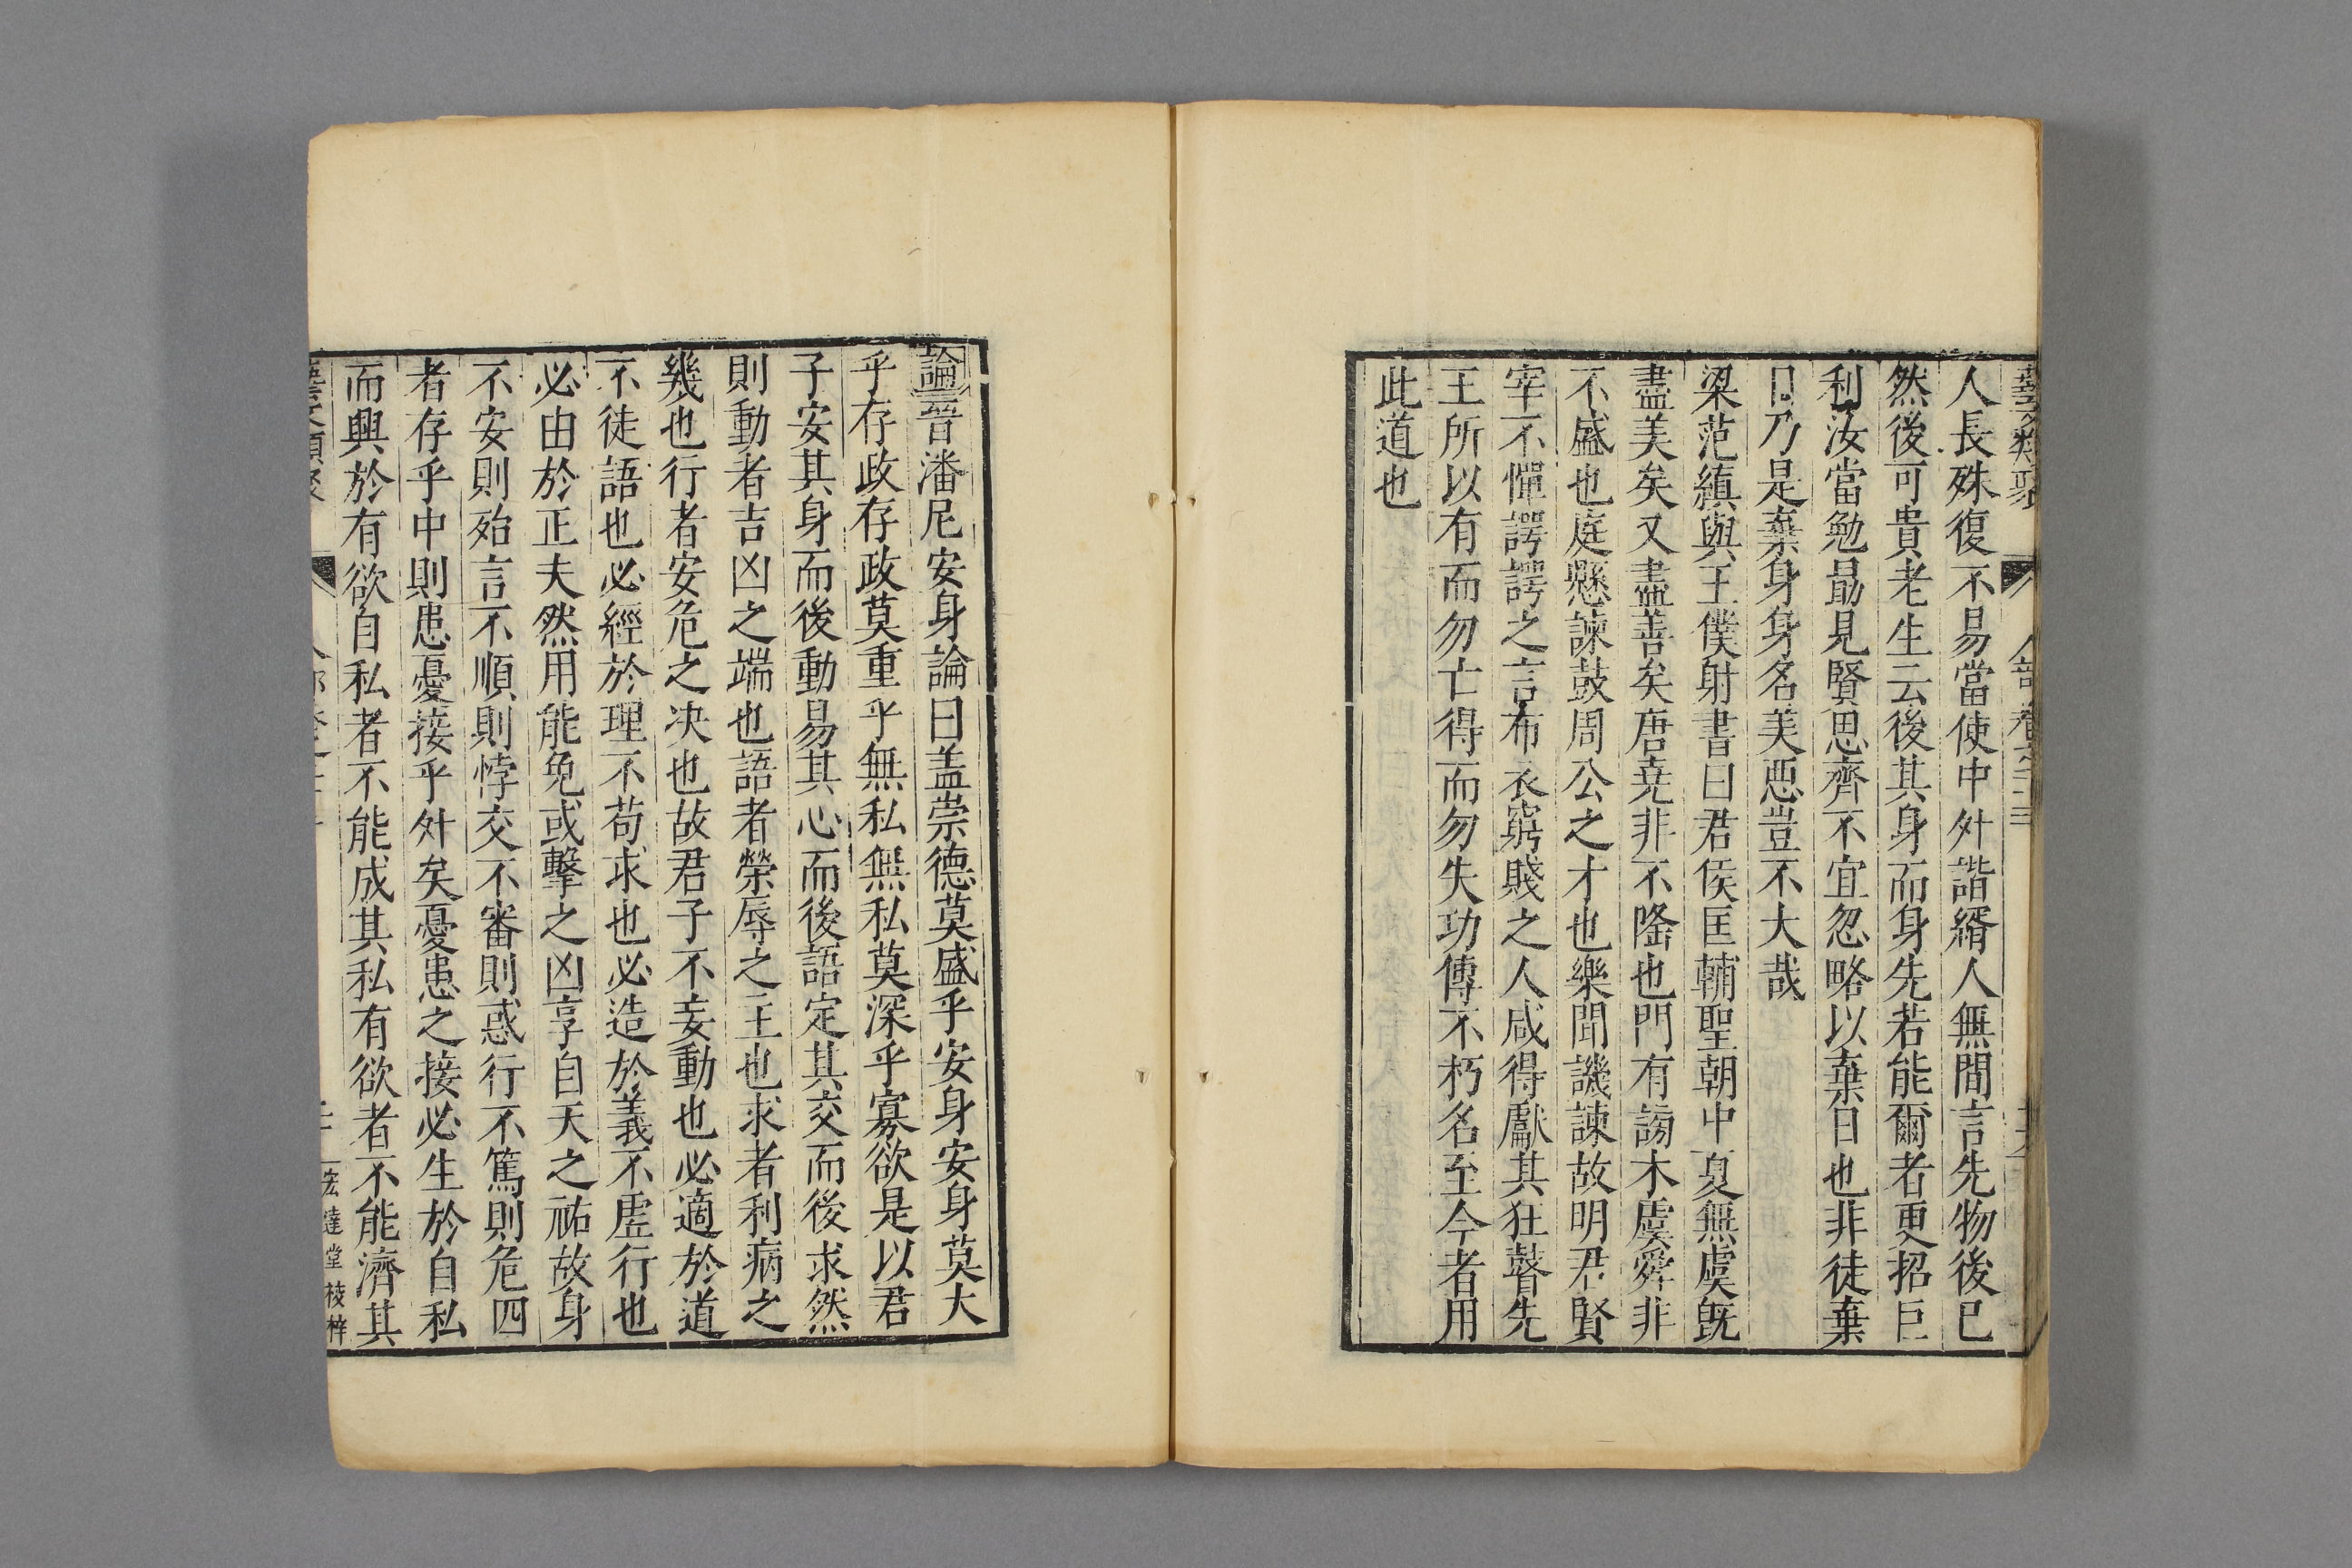 藝文類聚 人部 卷之二十三
人長殊復不易當使中外諧緝人無間言先物後已
然後可貴老生云後其身而身先若能爾者更招巨
利汝當勉勗見賢思齊不宜忽略以棄日也非徒棄
日乃是棄身身名美惡豈不大哉
梁范縝與王僕射書曰君侯匡輔聖朝中夏無虞旣
盡美矣又盡善矣唐堯非不隆也門有謗木虞舜非
不盛也庭懸諫鼓周公之才也樂聞譏諫故明君賢
宰不憚諤諤之言布衣窮賤之人咸得獻其狂瞽先
王所以有而勿亡得而勿失功傳不朽名至今者用
此道也
論晉潘尼安身論曰盖崇德莫盛乎安身安身莫大
乎存政存政莫重乎無私無私莫深乎寡欲是以君
子安其身而後動易其心而後語定其交而後求然
則動者吉凶之端也語者榮辱之主也求者利病之
幾也行者安危之决也故君子不妄動也必適於道
不徒語也必經於理不苟求也必造於義不虛行也
必由於正夫然用能免或擊之凶享自天之祐故身
不安則殆言不順則悖交不審則惑行不篤則危四
者存乎中則患憂接乎外矣憂患之接必生於自私
而興於有欲自私者不能成其私有欲者不能濟其
藝文類聚 人部 宏達堂校梓